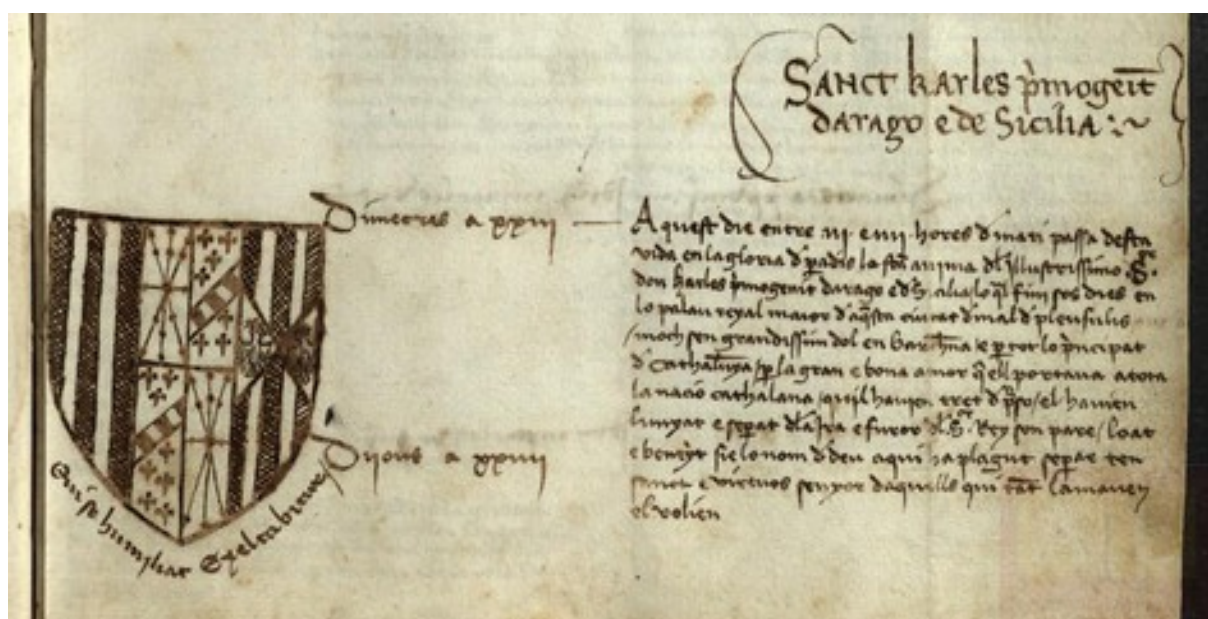 Sanct karles p̄mogeīt
darago e de Sicilia :~
Dimecres a xxiii — Aquest die entre iii e iiii hores d̄ mati passa desta
vida en la gloria d̄ paradis la sc̄a anima dl̄ Illustrissimo .S.ᵒʳ
don karles p̄mogenit darago e d̄ Sicilia lo q̄l finí sos dies en
lo palau reyal maior d̄ aq̄sta ciutat d̄ mal d̄ pleusulis
/ moch sen grandissim dol en Barch̄na / e p̄ tot lo p̄ncipat
d̄ Cathalunya / p̄ la gran e bona amor q̄ ell portaua a tota
la nacio cathalana / qui l hauien tret d̄ p̄so / el hauien
lunyat e sep̄at dl̄a Ira e furor dl̄ .S.ᵒʳ Rey son pare / loat
Dijous a xxiiii e beneyt sie lo nom d̄ deu a qui ha plagut sep̄ar ten
sanct e virtuos senyor daquells qui tāt lamauen
el volien
Qui se humiliat Exaltabitur